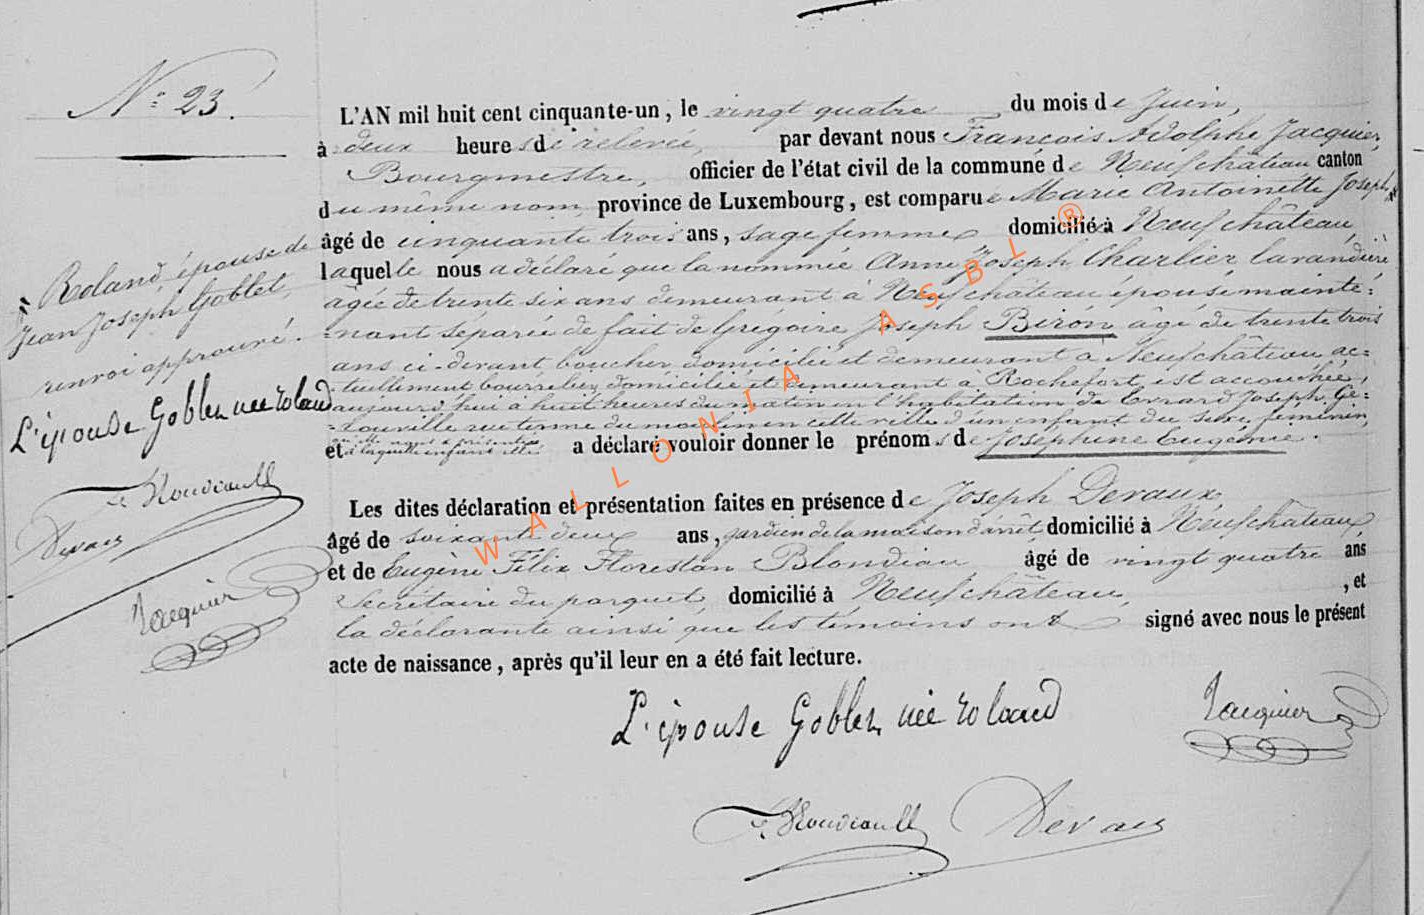 N° 23.
L'AN mil huit cent cinquante-un, le vingt quatre du mois de Juin,
à deux heures de relevée, par devant nous François Adolphe Jacquier,
Bourgmestre, officier de l'état civil de la commune de Neufchâteau canton
du même nom, province de Luxembourg, est comparue Marie Antoinette Joseph
âgé de cinquante trois ans, sage femme domiciliée à Neufchâteau,
laquelle nous a déclaré que la nommée Anne Joseph Charlier lavandière
agée de trente six ans demeurant à Neufchâteau épouse mainte=
=nant séparée de fait de Grégoire Joseph Biron âgé de trente trois
ans ci-devant boucher domicilié et demeurant à Neufchâteau ac=
=tuellement bourrelier, domicilié et demeurant à Rochefort, est accouchée,
aujourd'hui à huit heures du matin en l'habitation de Evrard Joseph Gé=
=rouville rue terme du moulin en cette ville d'un enfant du sexe féminin,
qu'elle nous a présenté
et à laquelle enfant elle a déclaré vouloir donner le prénoms de Joséphine Eugénie.
Les dites déclaration et présentation faites en présence de Joseph Devaux
âgé de soixante deux ans, gardien de la maison d'arrêt, domicilié à Neufchâteau
et de Eugène Félix Florestan Blondiau âgé de vingt quatre ans
Secrétaire du parquet, domicilié à Neufchâteau, , et
la déclarante ainsi que les témoins ont signé avec nous le présent
acte de naissance, après qu'il leur en a été fait lecture.
Roland, épouse de
Jean Joseph Goblet,
renvoi approuvé.
L'épouse Goblet née roland
Devaux
Jacquier
L'épouse Goblet née roland
Jacquier
Devaux
WALLONIA ASBL ®